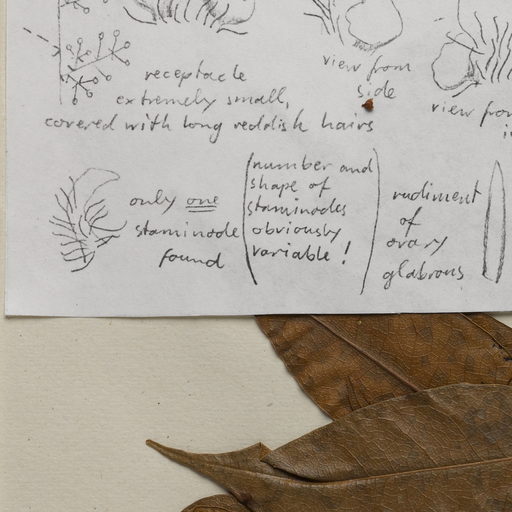 receptacle
extremely small,
covered with long reddish hairs
view from
side
view from
only one
staminode
found
(number and
shape of
staminodes
obviously
variable!)
rudiment
of
ovary
glabrous